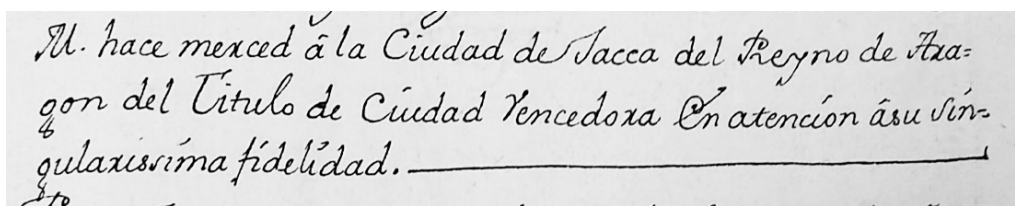 M. hace merced â la Ciudad de Jacca del Reyno de Ara=
gon del Titulo de Ciudad Vencedora En atención âsu sin=
gularissima fidelidad.